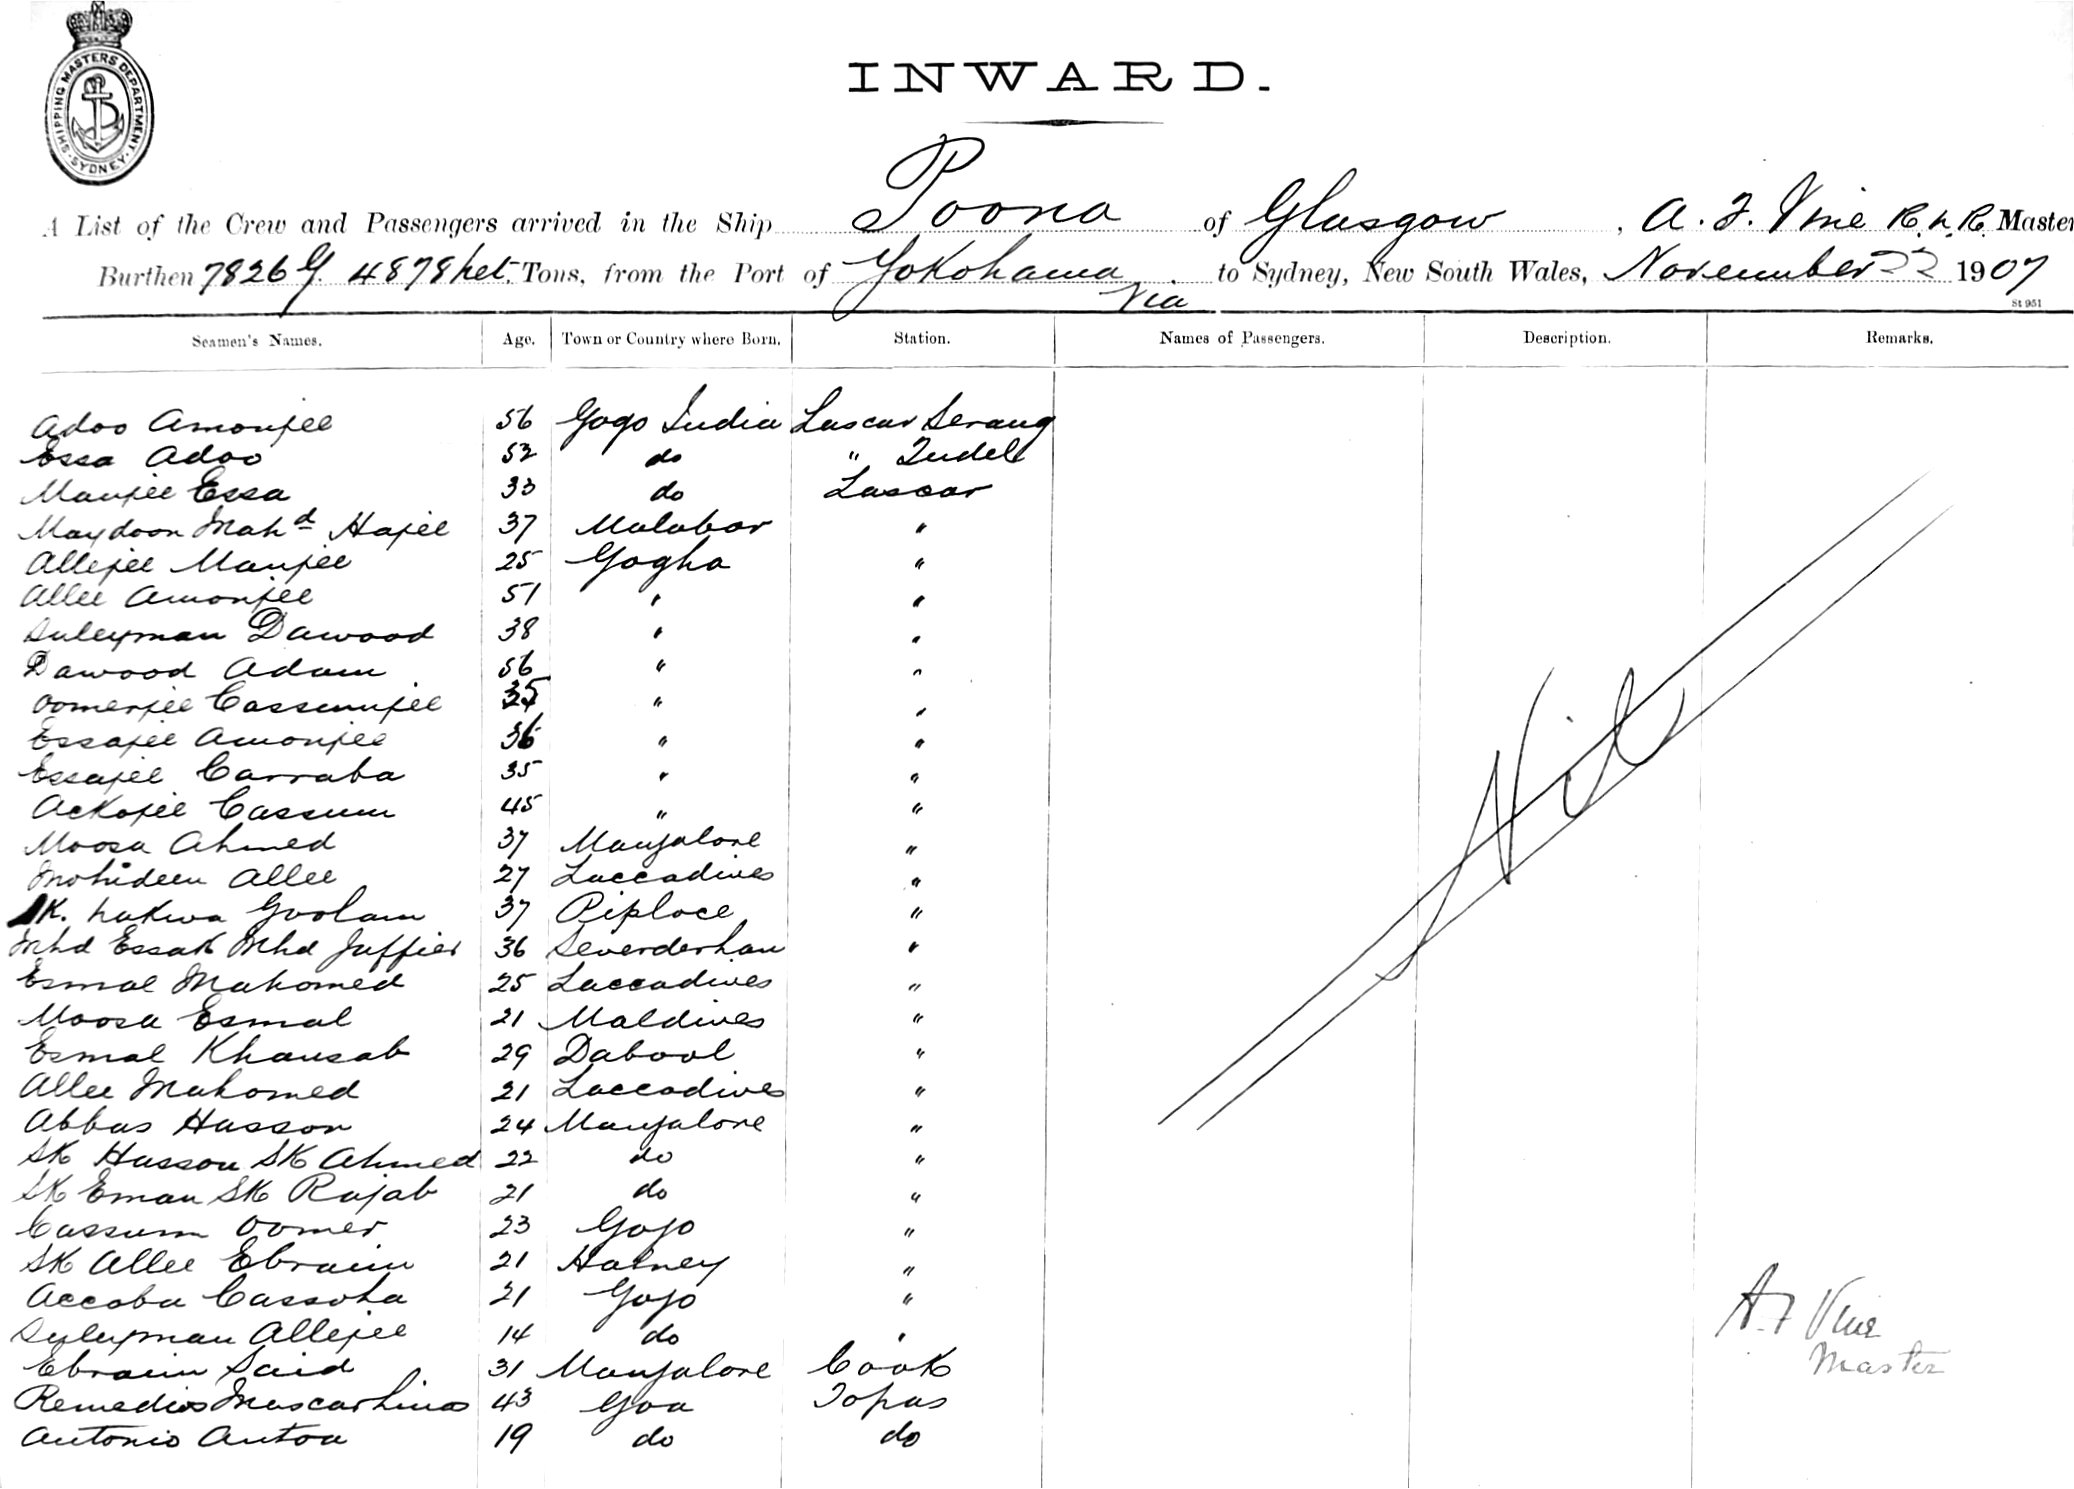 SHIPPING MASTERS DEPARTMENT · SYDNEY ·
INWARD.
A List of the Crew and Passengers arrived in the Ship Poona of Glasgow, A. F. Vine R.N.R. Master
Burthen 7826 G. 4878 Net. Tons, from the Port of Yokohama to Sydney, New South Wales, November 22 1907
Via
St 951
Seamen's Names. Age. Town or Country where Born. Station. Names of Passengers. Description. Remarks.
Adoo Amonjee 56 Gogo India Lascar Serang
Essa Adoo 52 do " Tindel
Manjee Essa 33 do Lascar
Maydoon Mahd Hajee 37 Malabar "
Allejee Manjee 25 Gogha "
Allee Amonjee 51 " "
Suleyman Dawood 38 " "
Dawood Adam 56 " "
Oomerjee Cassumjee 35 " "
Essajee Amonjee 36 " "
Essajee Carraba 35 " "
Ackojee Cassum 45 " "
Moosa Ahmed 37 Mangalore "
Mohideen Allee 27 Laccadives "
SK. Goolam 37 Piploee "
Mhd Essak Mhd Jaffier 36 "
Esmal Mahomed 25 Laccadives "
Moosa Esmal 21 Maldives "
Esmal Khansab 29 Dabool "
Allee Mahomed 21 Laccadives "
Abbas Hasson 24 Mangalore "
SK Hasson SK Ahmed 22 do "
SK Eman SK Rajab 21 do "
Cassum Oomer 23 Gogo "
SK Allee Ebraim 21 Harney "
Accoba Cassoha 21 Gogo "
Suleyman Allejee 14 do "
Ebraim Said 31 Mangalore Cook
Remedios Mascarhinas 43 Goa Topas
Antonio Antoa 19 do do
Nil
A. F Vine
Master